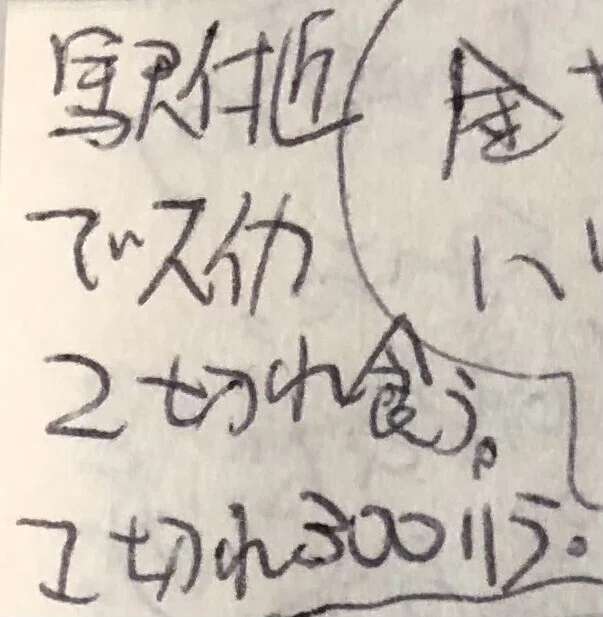 駅付近
でスイカ
2切れ食う。
1切れ300リラ。